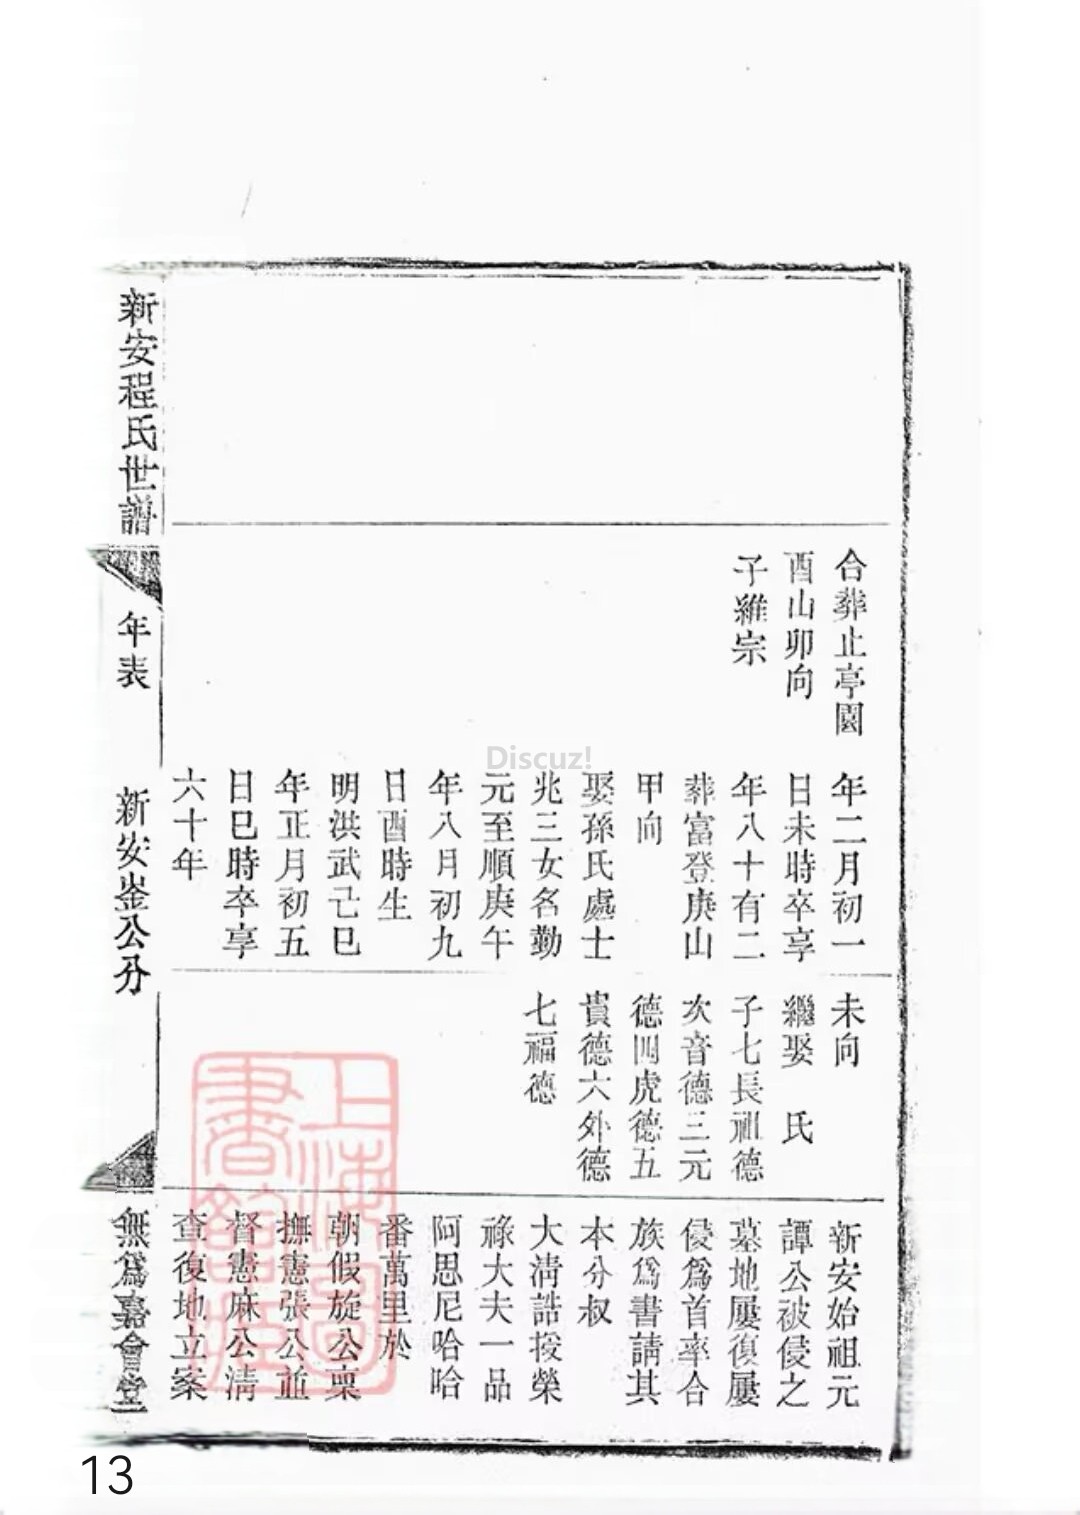 合葬止亭園
酉山卯向
子維宗
年二月初一
日未時卒享
年八十有二
葬富登庚山
甲向
娶孫氏處士
兆三女名勤
元至順庚午
年八月初九
日酉時生
明洪武己巳
年正月初五
日巳時卒享
六十年
未向
繼娶　氏
子七長祖德
次音德三元
德四虎德五
貴德六外德
七福德
新安始祖元
譚公被侵之
墓地屢復屢
侵爲首率合
族爲書請其
本分叔
大清誥授榮
祿大夫一品
阿思尼哈哈
番萬里於
朝假旋公稟
撫憲張公並
督憲麻公清
查復地立案
新安程氏世譜
年表
新安崟公分
無爲嘉會堂
上海圖書館藏
Discuz!
13